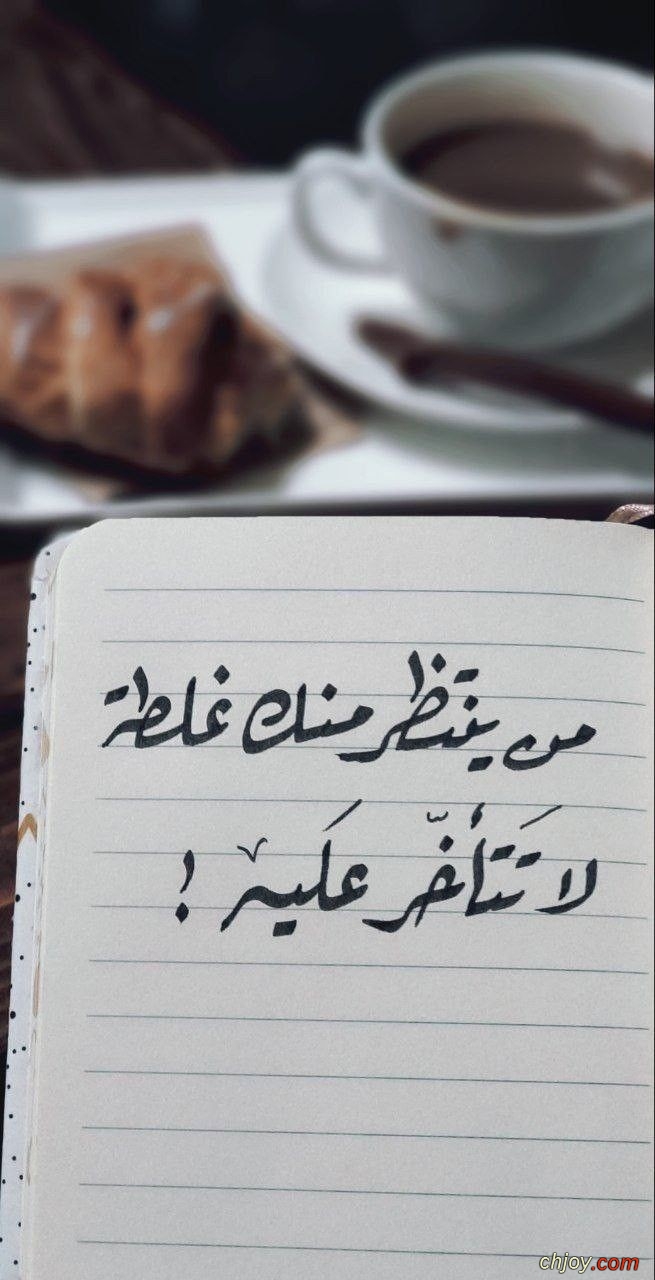 من ينتظر منك غلطة
لا تَتأخّر عَليه !
chjoy.com